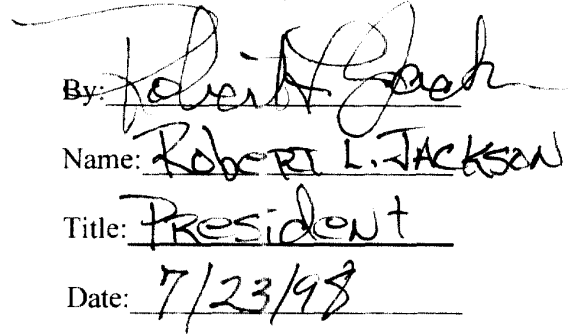 By: Robert L. Jack
Name: ROBERT L. JACKSON
Title: PResident
Date: 7/23/98